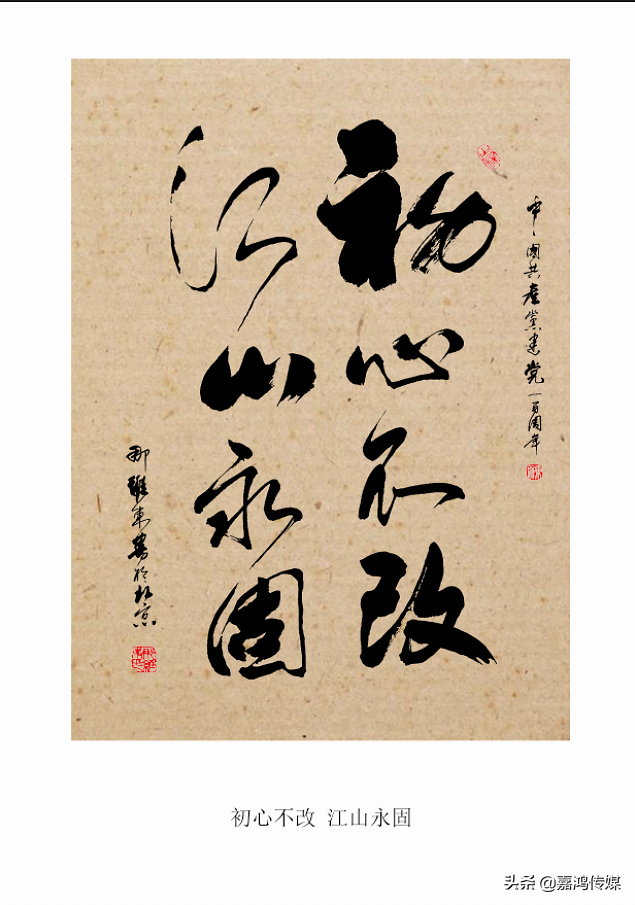 中国共產黨建党一百周年
初心不改
江山永固
那維東書於北京
初心不改 江山永固
头条 @嘉鸿传媒